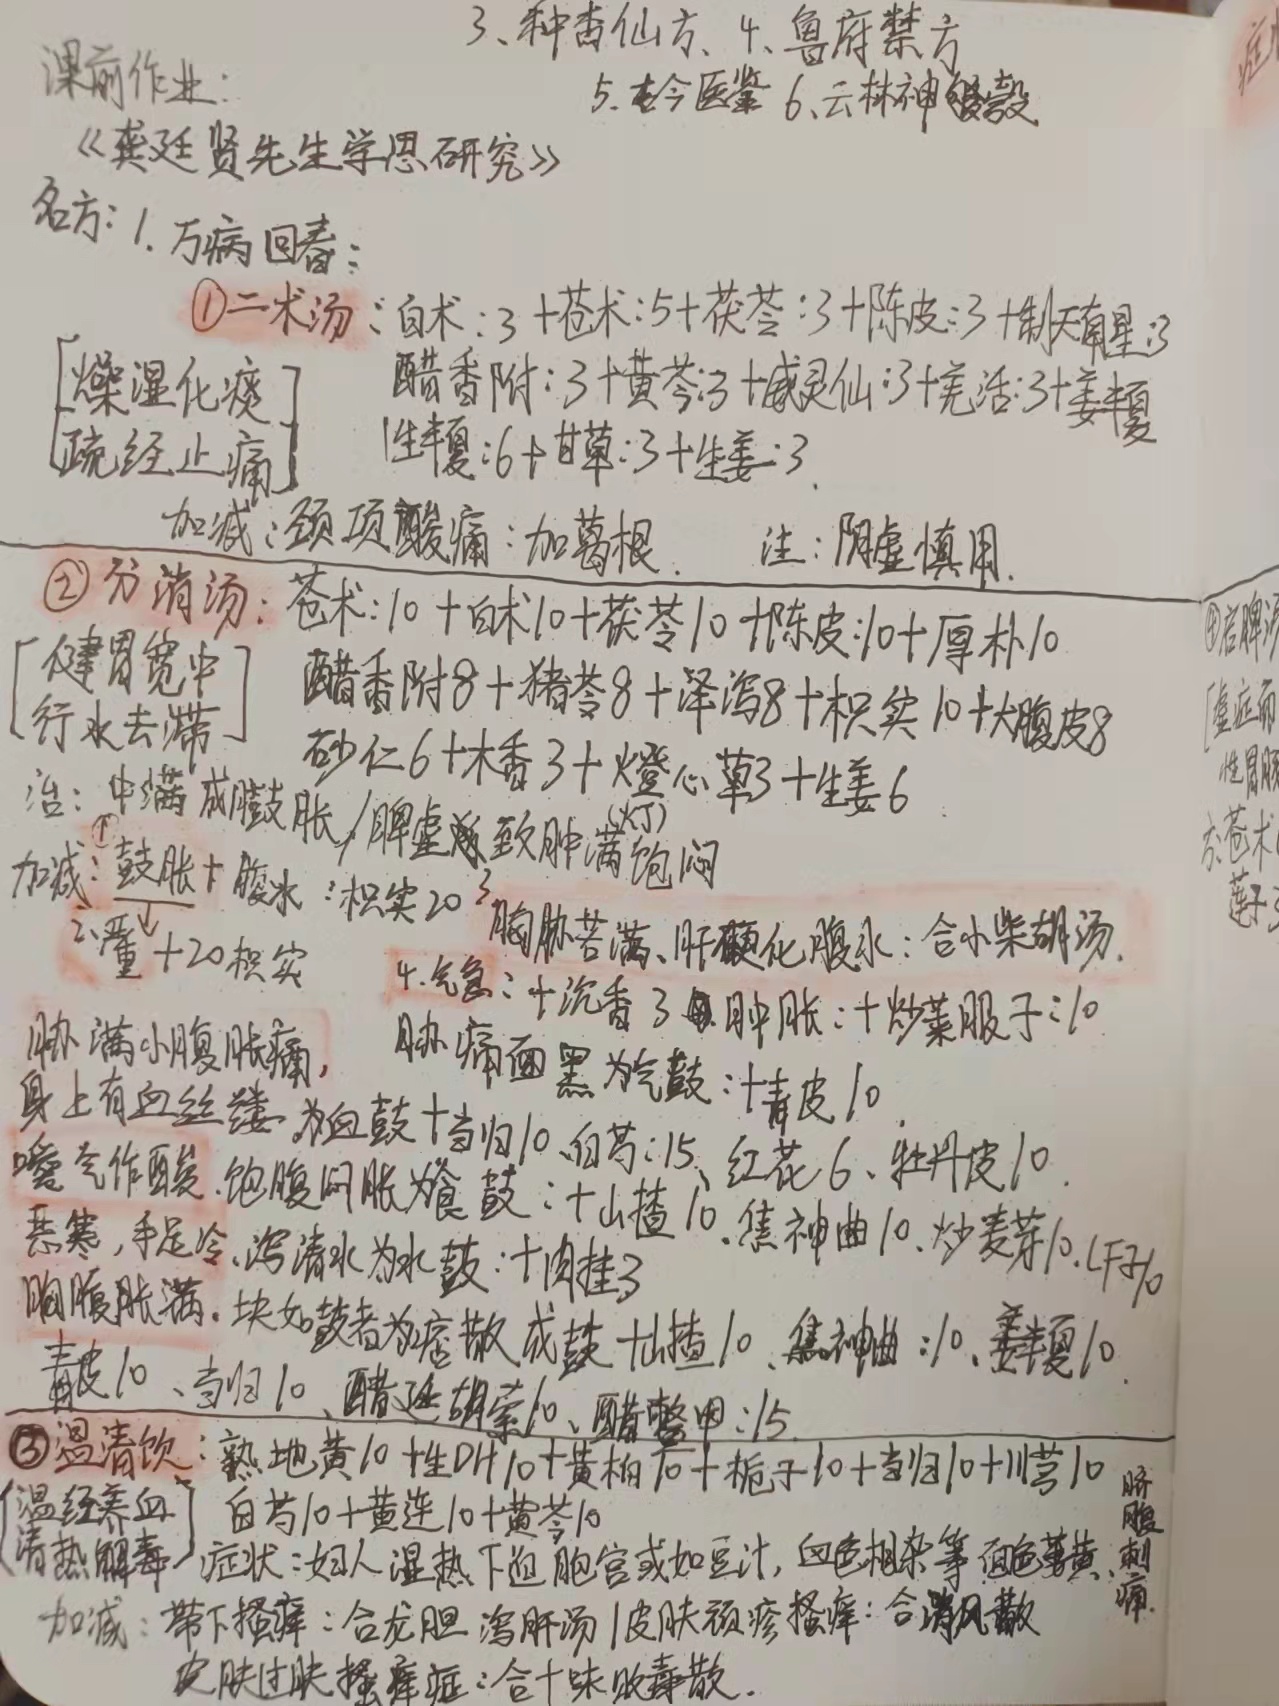 3、种杏仙方、4、鲁府禁方
课前作业:
5.古今医鉴 6、云林神彀
《龚廷贤先生学思研究》
名方:1.万病回春:
①二术汤:白术:3+苍术:5+茯苓:3+陈皮:3+制天南星:3
[燥湿化痰 醋香附:3+黄芩:3+威灵仙:3+羌活:3+姜半夏
疏经止痛] 生半夏:6+甘草:3+生姜:3.
加减:颈项酸痛:加葛根. 注:阴虚慎用.
②分消汤:苍术:10+白术10+茯苓10+陈皮:10+厚朴10
[健胃宽中 醋香附8+猪苓8+泽泻8+枳实10+大腹皮8
行水去滞] 砂仁6+木香3+燈心草3+生姜6.
(灯)
治:中满成膨鼓胀/脾虚 致肿满饱闷
加减:1.鼓胀+腹水:枳实20
2.严重+20枳实
3.胸胁苦满、肝硬化腹水:合小柴胡汤.
4.气急:+沉香3 肿胀:+炒莱服子:10
胁痛面黑为气鼓:+青皮10.
胁满小腹胀痛,
身上有血丝缕.为血鼓+当归10、白芍:15、红花6、牡丹皮10.
嗳气作酸.饱腹闷胀为食鼓:+山楂10.焦神曲10.炒麦芽10.LF子10
恶寒,手足冷、泻清水为水鼓:+肉桂3
胸腹胀满.块如鼓者为痞散成鼓+山楂10、焦神曲:10、姜半夏10.
青皮10、当归10、醋延胡索10、醋鳖甲:15.
③温清饮:熟地黄10+生DH10+黄柏10+栀子10+当归10+川芎10
[温经养血 白芍10+黄连10+黄芩10
清热解毒] 症状:妇人湿热下迫胞宫或如豆汁,血色相杂等 面色萎黄、脐腹刺痛.
加减:带下搔痒:合龙胆泻肝汤/皮肤顽疹搔痒:合消风散
皮肤过肤搔痒症:合十味败毒散.